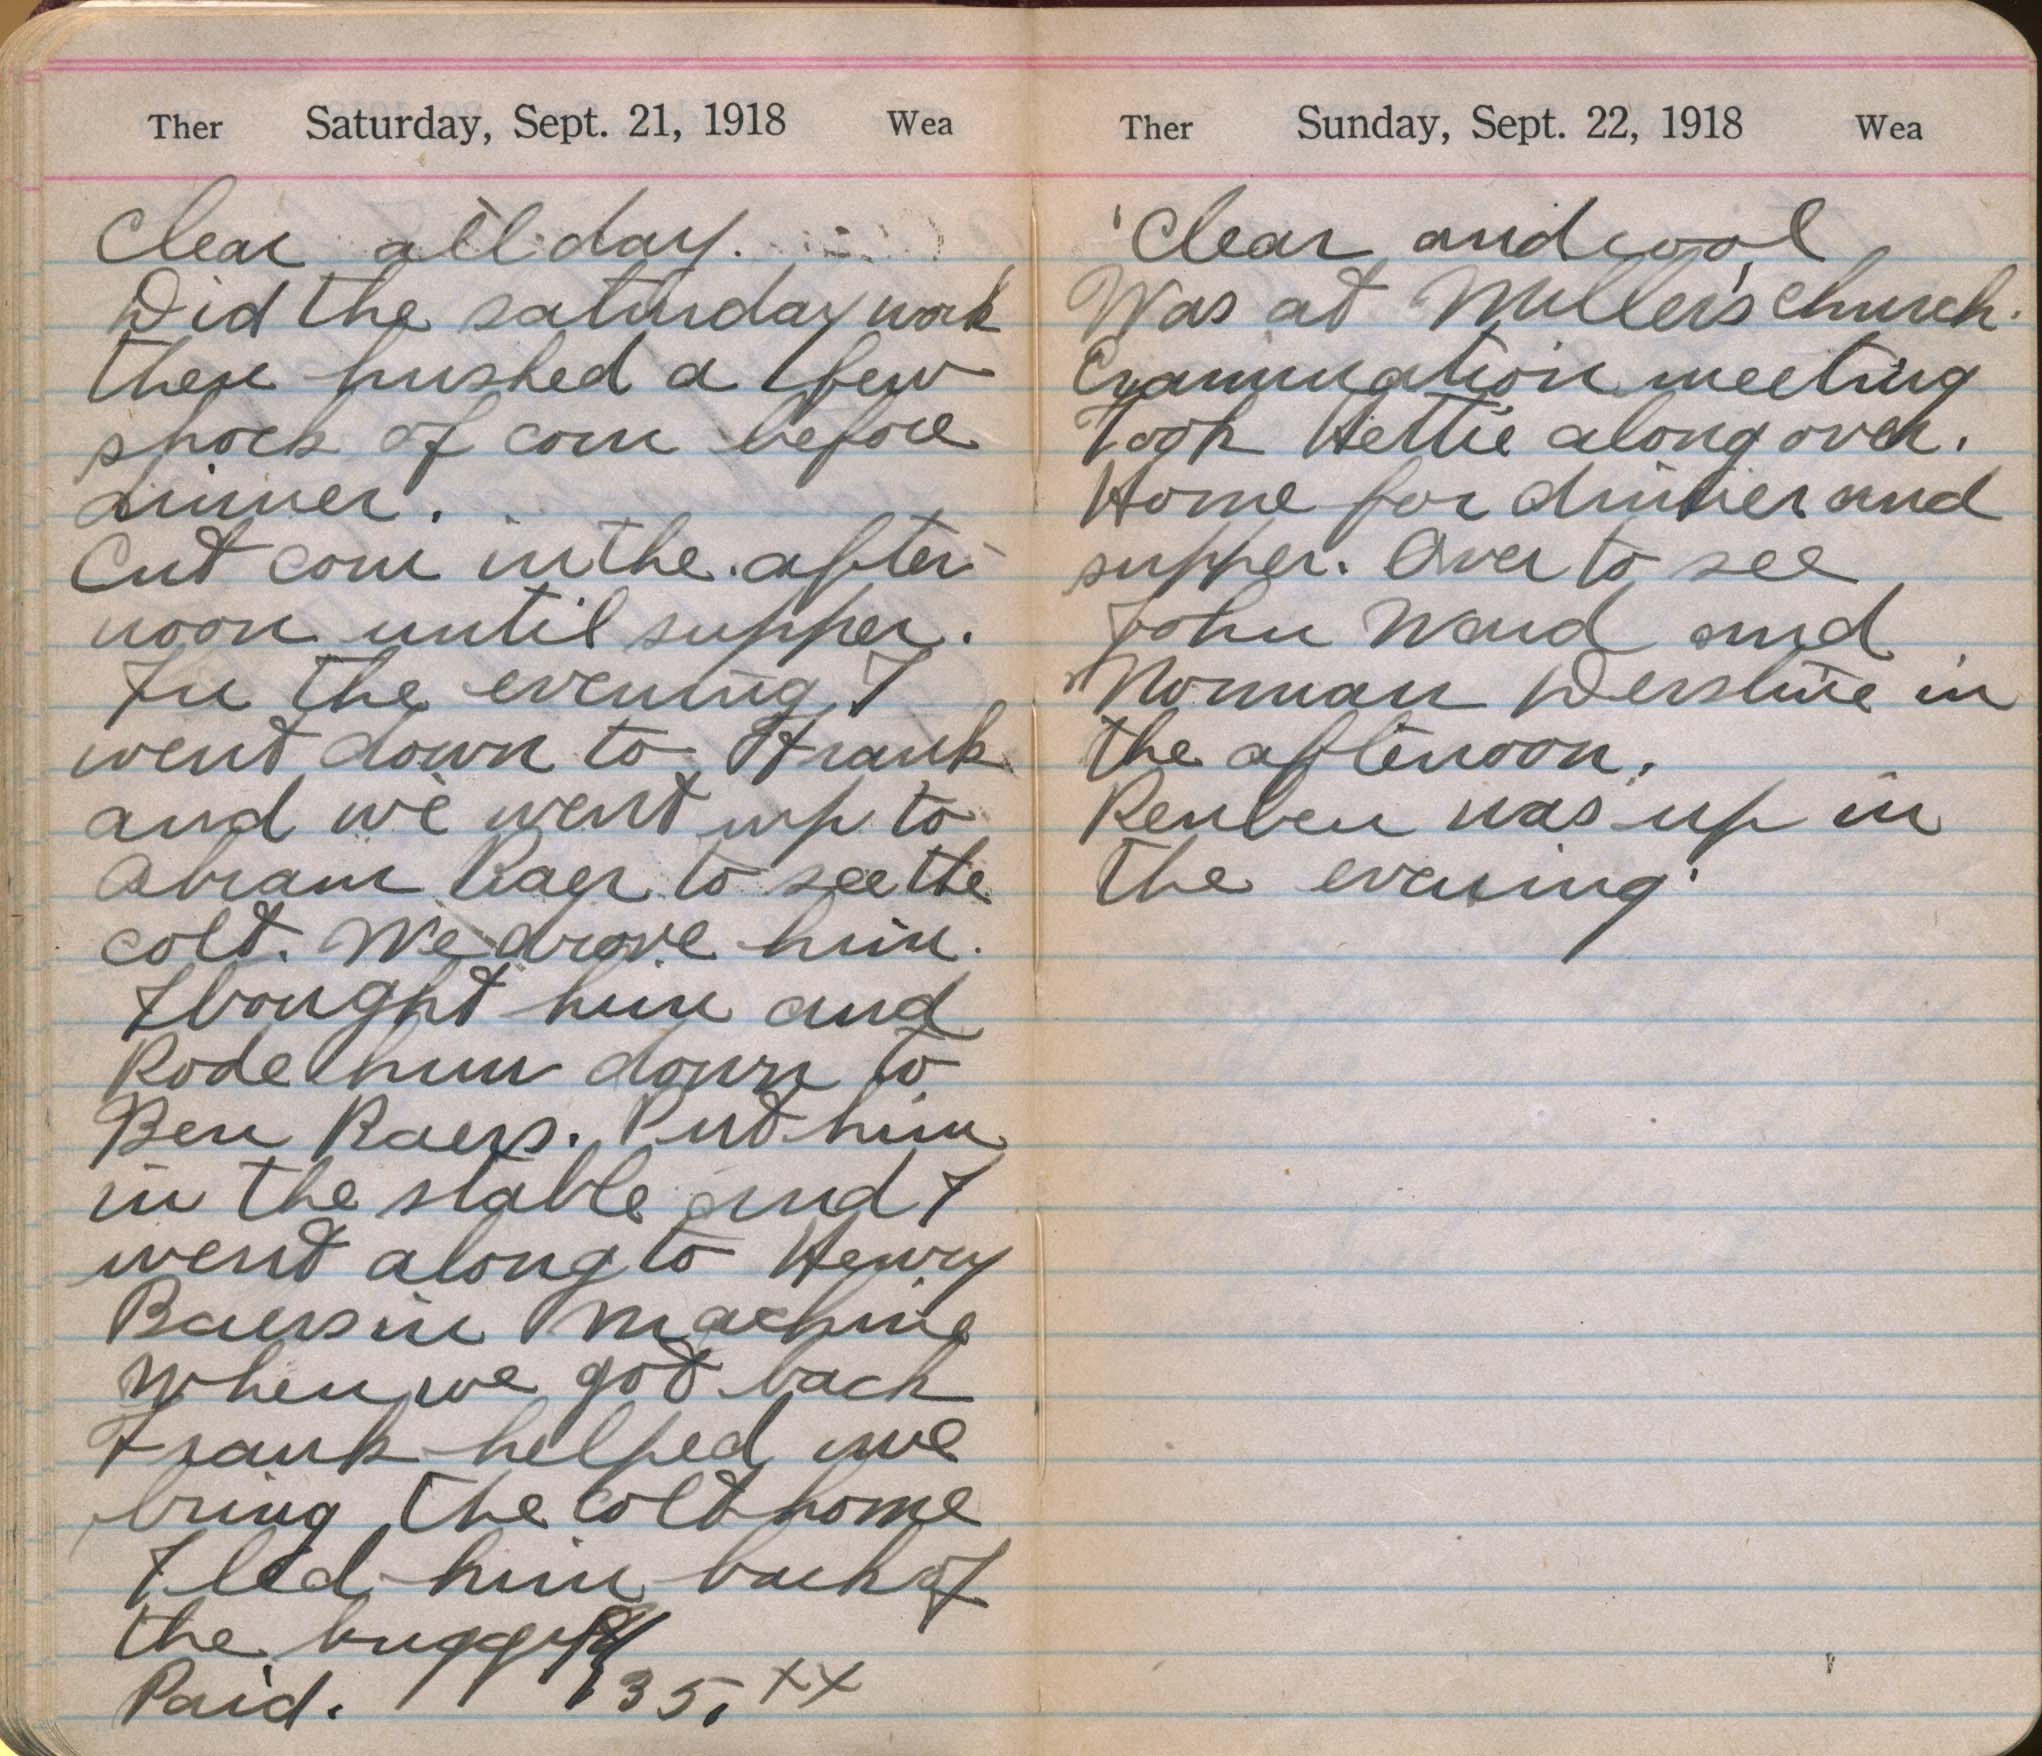 Ther Saturday, Sept. 21, 1918 Wea
Clear all day.
Did the saturday work
then husked a few
shock of corn before
dinner.
Cut corn in the after-
noon until supper.
In the evening I
went down to Frank
and we went up to
Abram Baer to see the
colt. We drove him.
I bought him and
Rode him down to
Ben Baers. Put him
in the stable and I
went along to Henry
Baers in machine
When we got back
Frank helped me
bring the colt home
I led him back of
the buggy
Paid. 135.xx
Ther Sunday, Sept. 22, 1918 Wea
Clear and cool
Was at Miller's church.
Examination meeting
Took Hettie along over.
Home for dinner and
supper. Over to see
John Ward and
Norman in
the afternoon.
Reuben was up in
the evening.